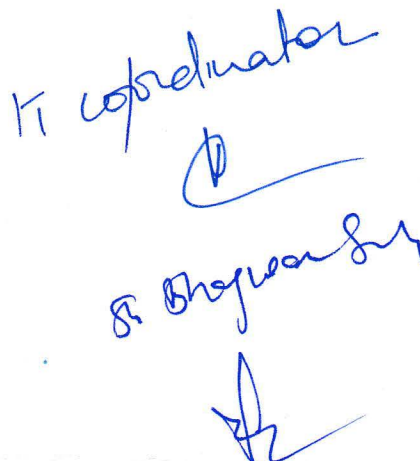 IT coordinator
Sh Bhagwan Singh